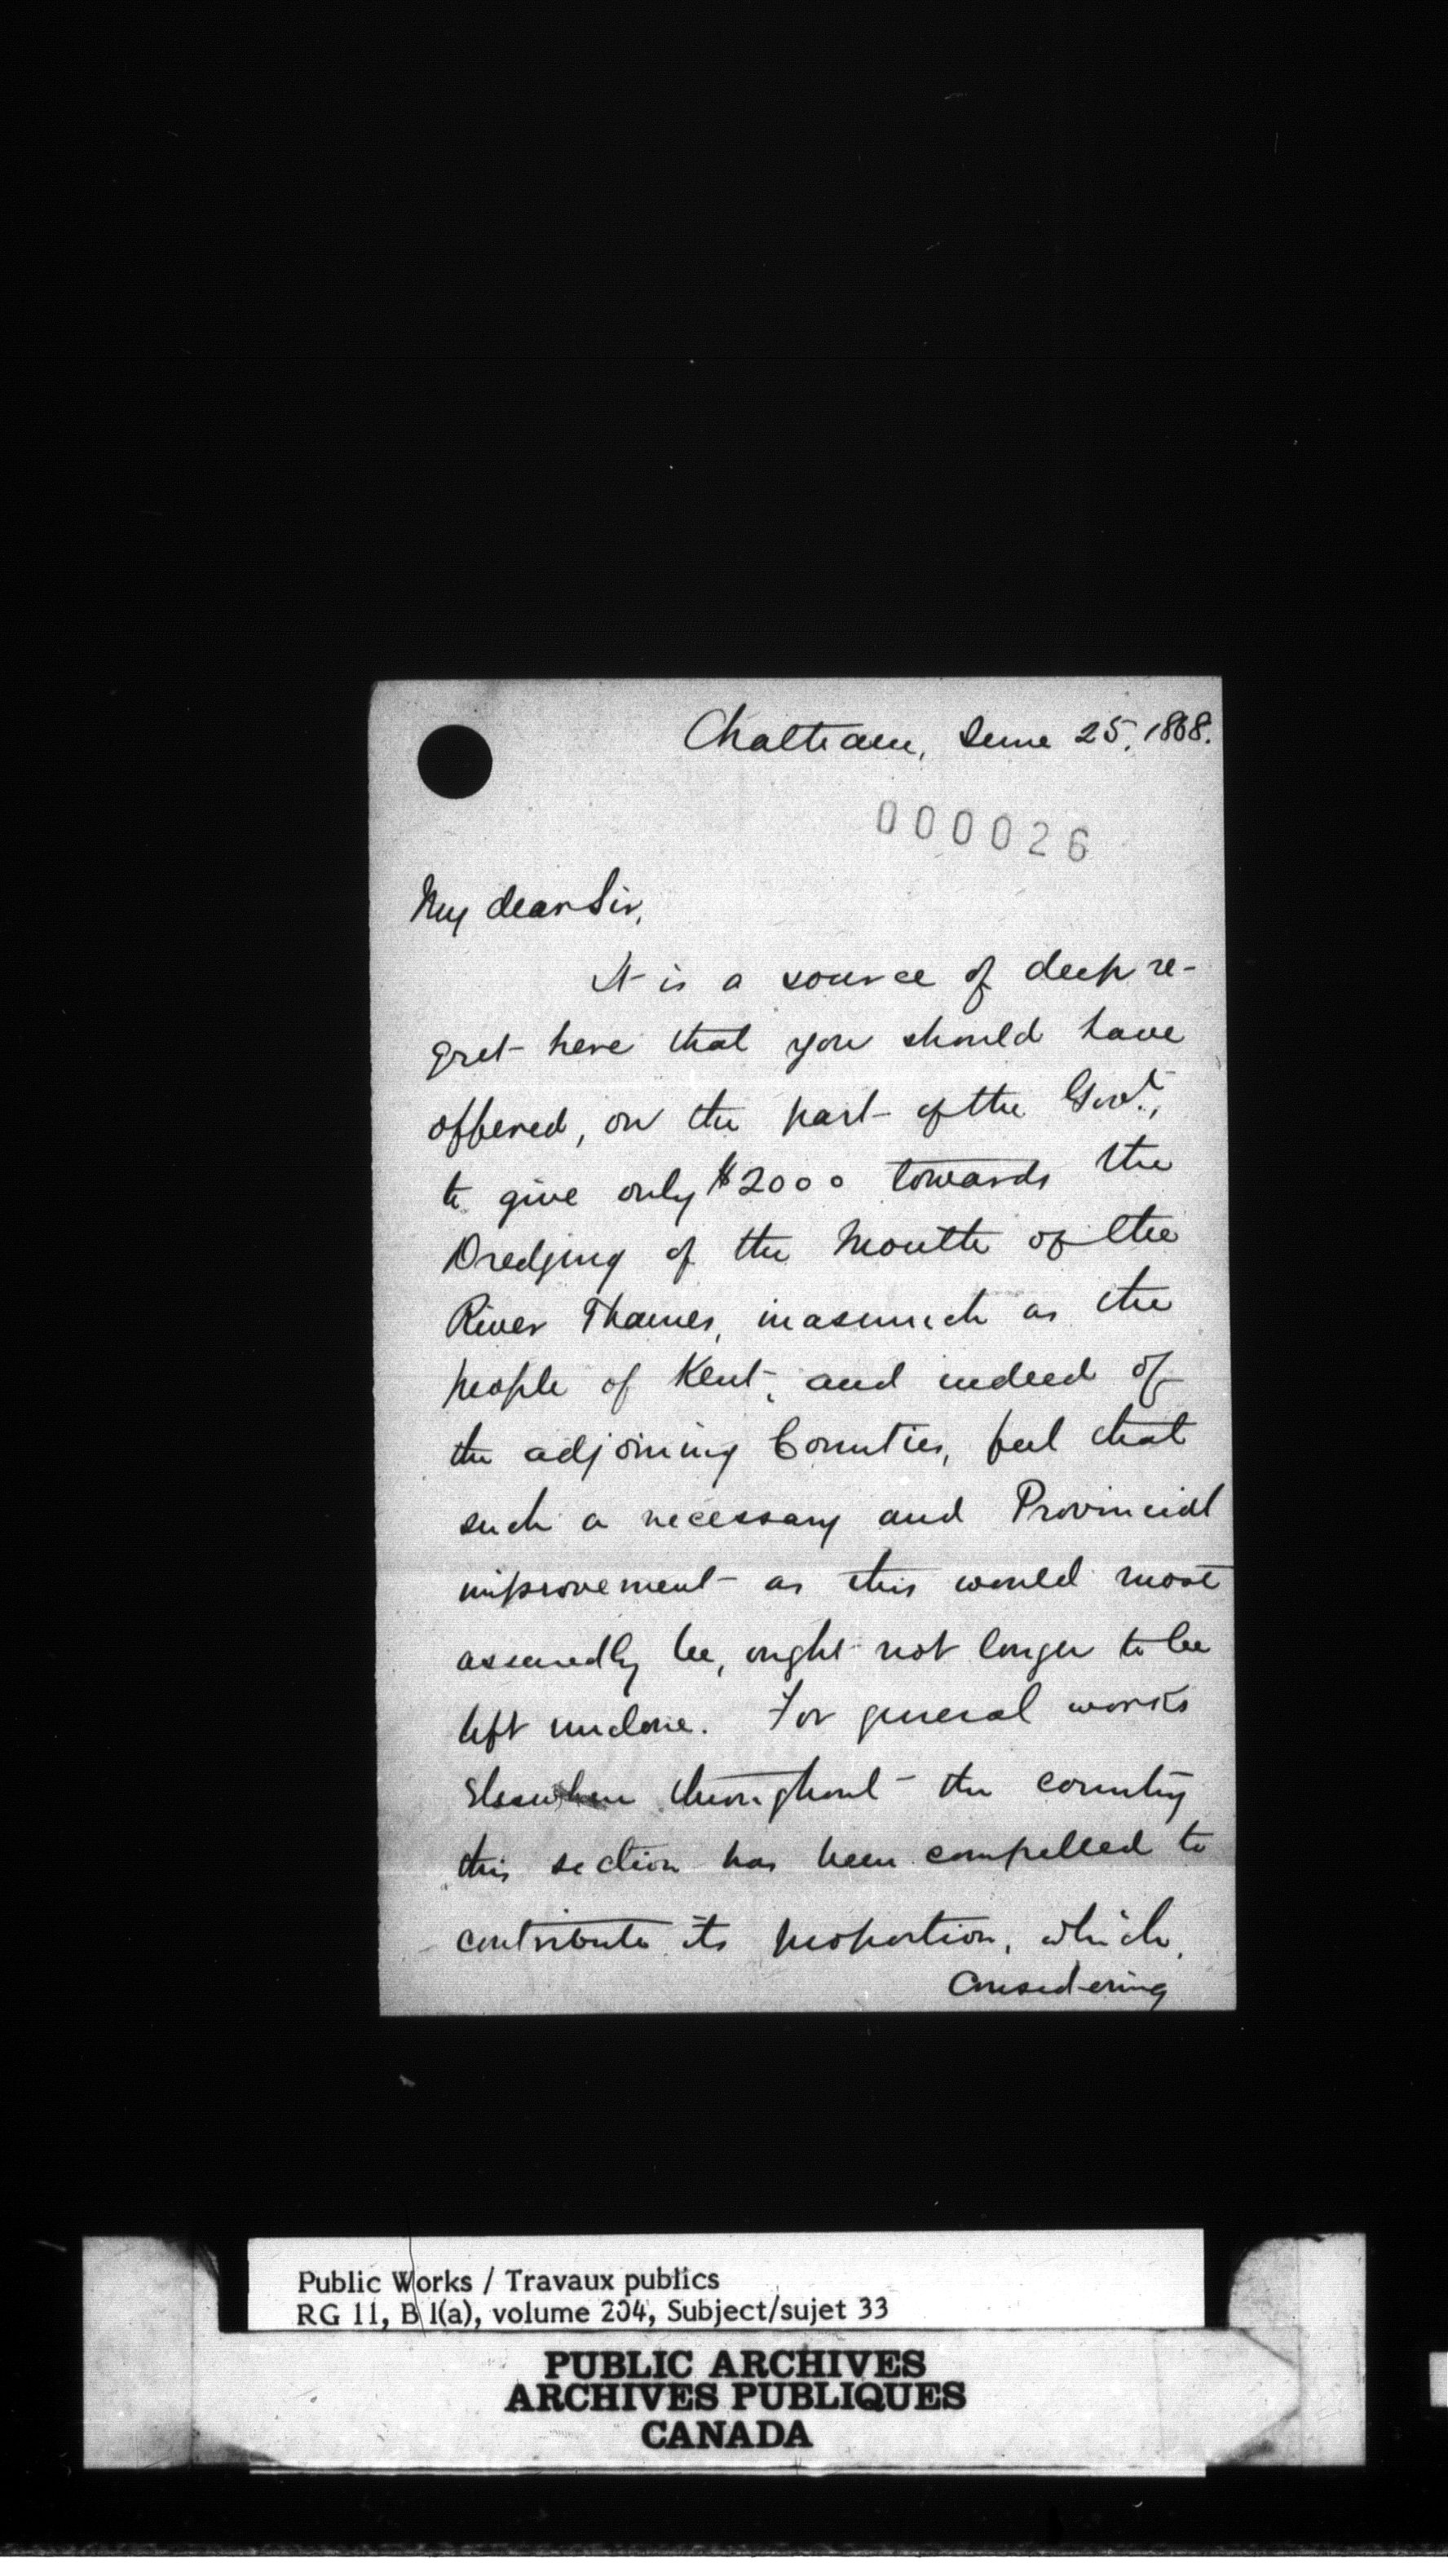 Chatham, June 25, 1868.
000026
My dear Sir,
It is a source of deep re-
gret here that you should have
offered, on the part of the Govt.,
to give only $2000 towards the
Dredging of the Mouth of the
River Thames, inasmuch as the
people of Kent, and indeed of
the adjoining Counties, feel that
such a necessary and Provincial
improvement as this would most
assuredly be, ought not longer to be
left undone. For general works
elsewhere throughout the country
this section has been compelled to
contribute its proportion, which,
considering
Public Works / Travaux publics
RG 11, B 1(a), volume 204, Subject/sujet 33
PUBLIC ARCHIVES
ARCHIVES PUBLIQUES
CANADA